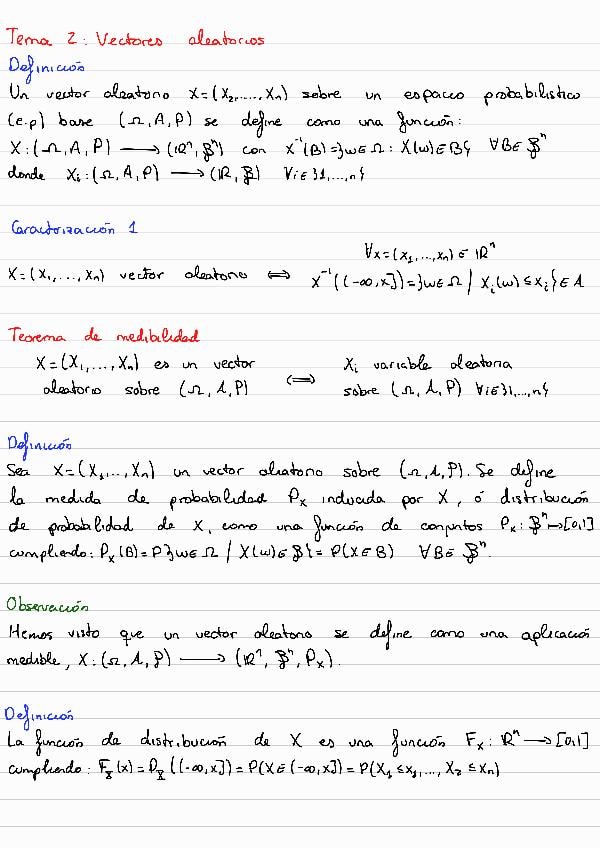 Tema 2: Vectores aleatorios
Definición
Un vector aleatorio X=(X₁,...,Xn) sobre un espacio probabilístico
(e.p) base (Ω, A, P) se define como una función:
X:(Ω, A, P) ⟶ (ℝⁿ, 𝓑ⁿ) con X⁻¹(B)={ω∈Ω : X(ω)∈B} ∀B∈𝓑ⁿ
donde Xᵢ:(Ω, A, P) ⟶ (ℝ, 𝓑) ∀i∈{1,...,n}
Caractorización 1
∀x=(x₁,...,xn)∈ℝⁿ
X=(X₁,...,Xn) vector aleatorio ⟺ X⁻¹((-∞,x])={ω∈Ω / Xᵢ(ω)≤xᵢ}∈A
Teorema de medibilidad
X=(X₁,...,Xn) es un vector ⟺ Xᵢ variable aleatoria
aleatorio sobre (Ω, A, P) sobre (Ω, A, P) ∀i∈{1,...,n}
Definición
Sea X=(X₁,...,Xn) un vector aleatorio sobre (Ω, A, P). Se define
la medida de probabilidad Pₓ inducida por X, ó distribución
de probabilidad de X, como una función de conjuntos Pₓ: 𝓑ⁿ→[0,1]
cumpliendo: Pₓ(B)=P{ω∈Ω / X(ω)∈𝓑}= P(X∈B) ∀B∈𝓑ⁿ.
Observación
Hemos visto que un vector aleatorio se define como una aplicación
medible, X:(Ω, A, P) ⟶ (ℝⁿ, 𝓑ⁿ, Pₓ).
Definición
La función de distribución de X es una función Fₓ: ℝⁿ ⟶ [0,1]
cumpliendo: Fₓ(x)=Pₓ((-∞,x])=P(X∈(-∞,x])=P(X₁≤x₁,..., X₂≤xn)